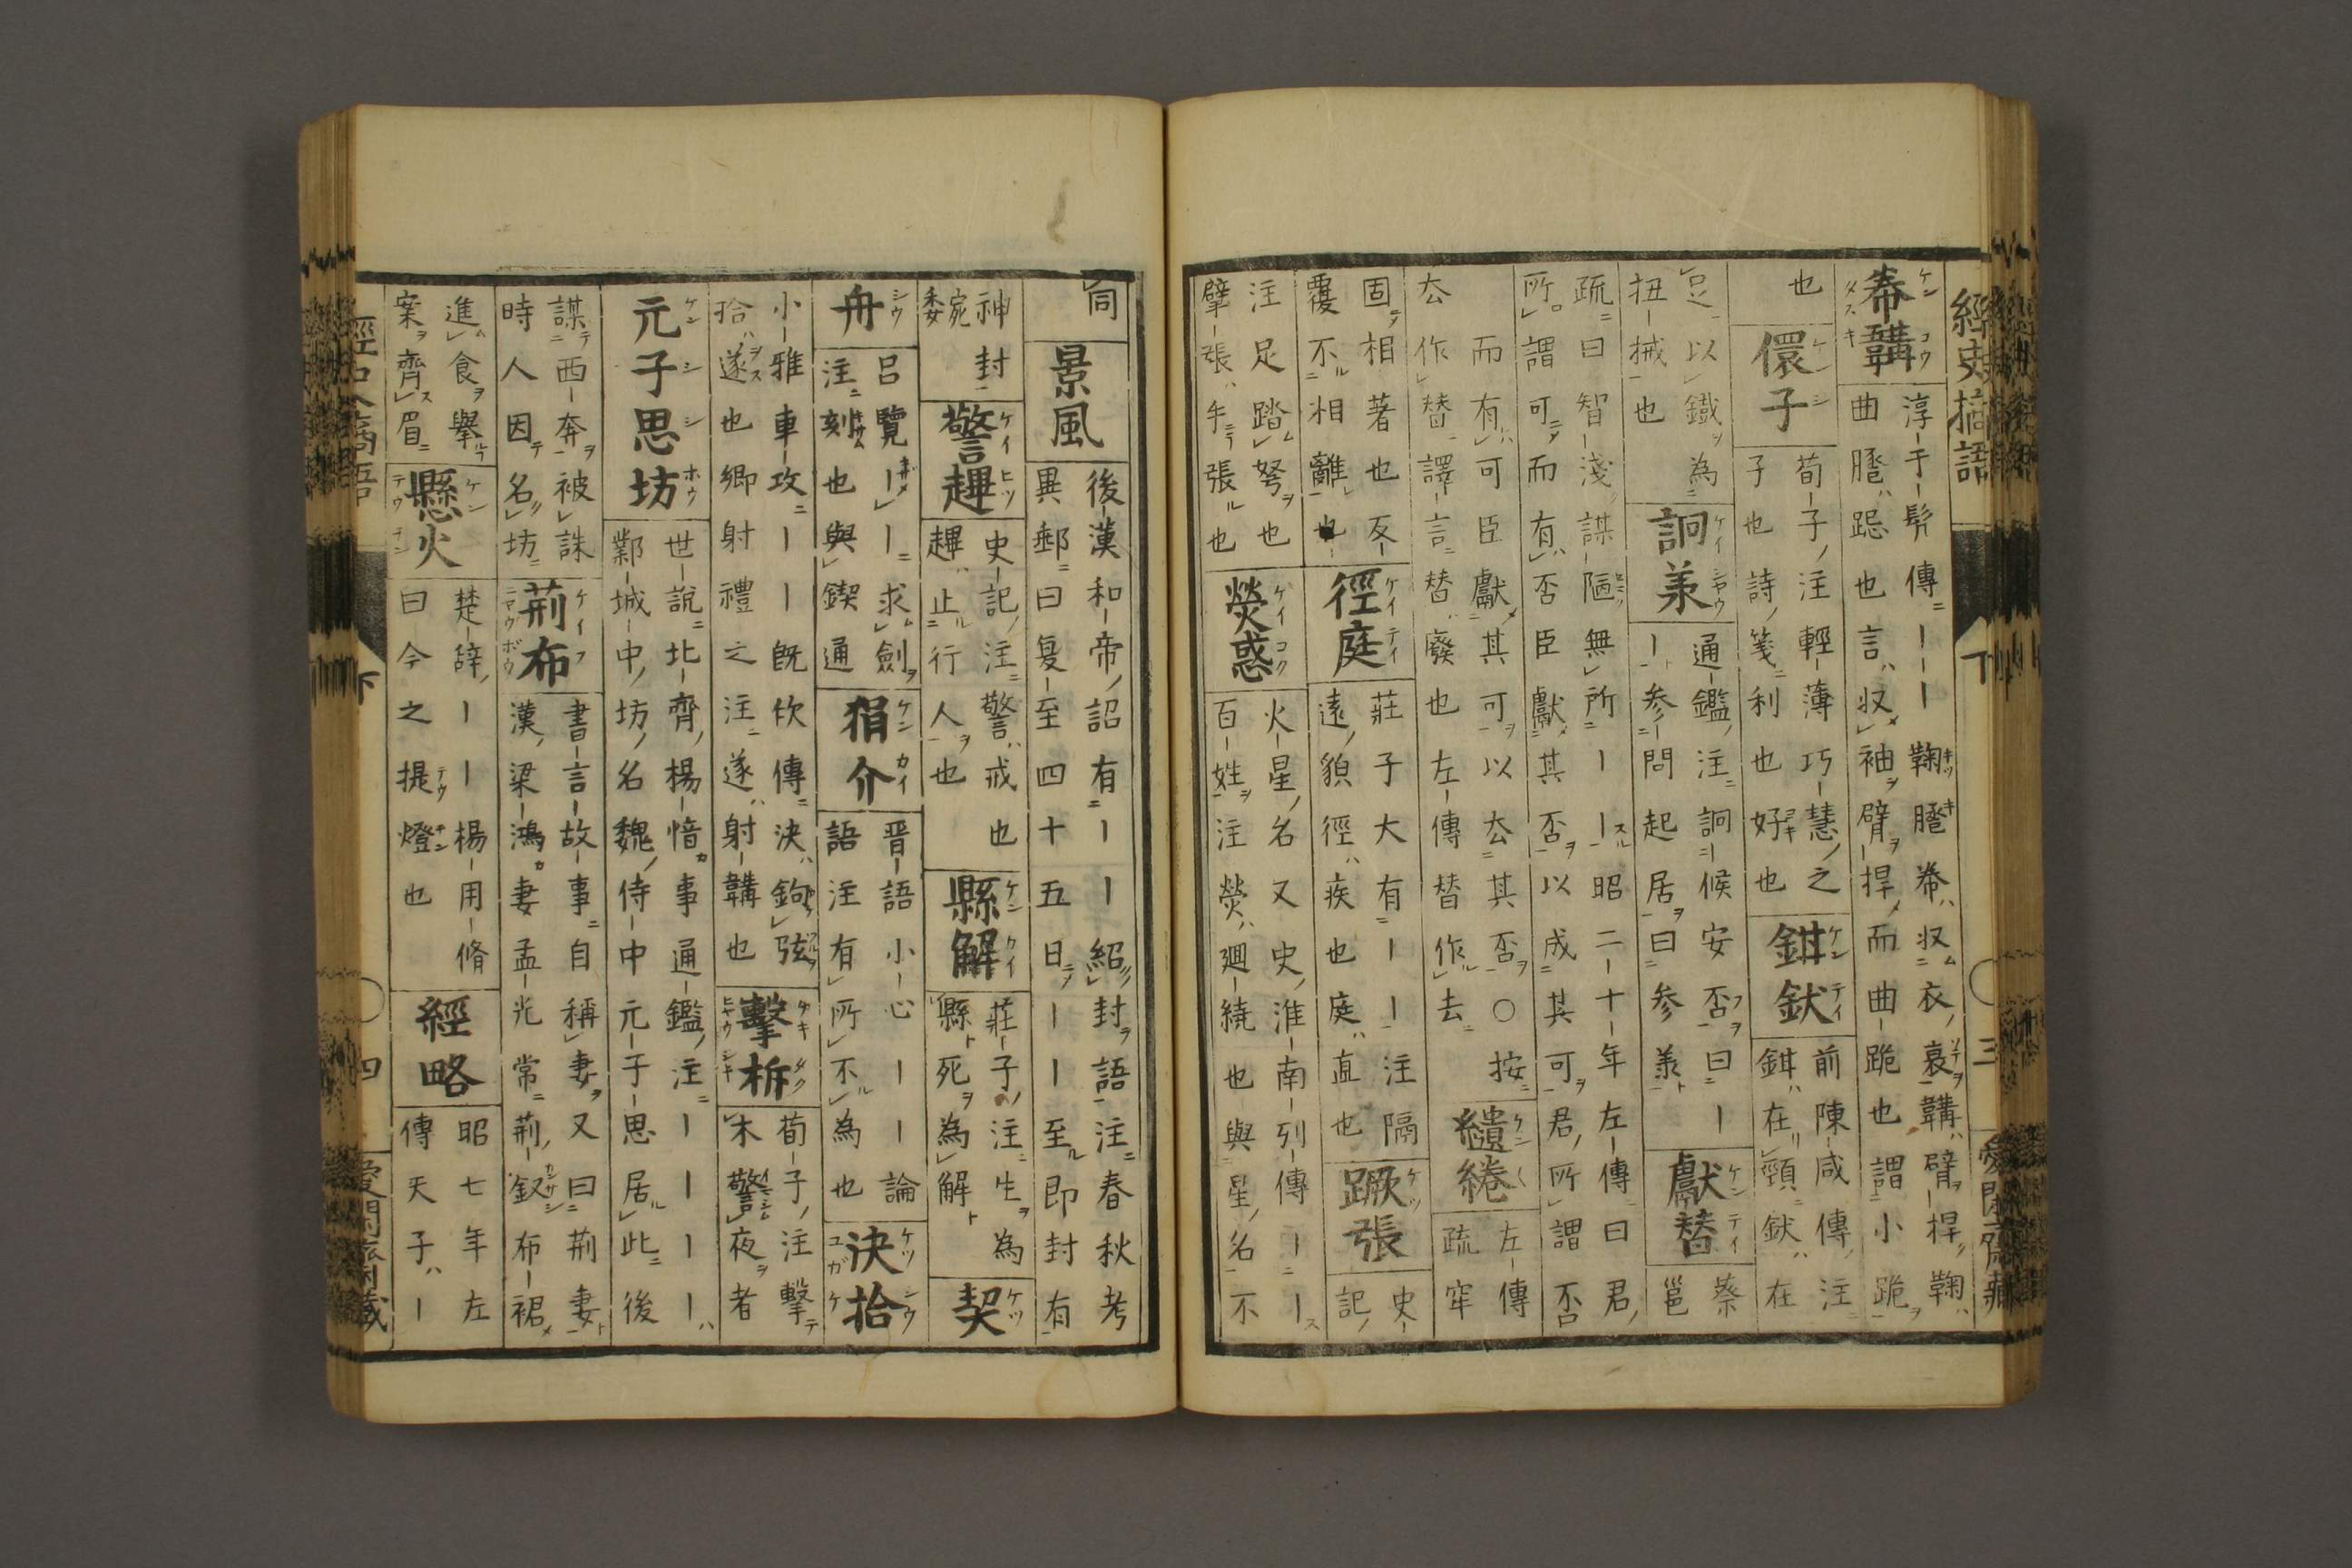 經史摘語 下 三 愛閑齋藏
帣韝 淳于髡傳ーーー鞠䠅帣収衣褎韝臂捍鞠
曲䠅跽也言収袖臂捍而曲跪也謂小跪
也 儇子 荀子注輕薄巧慧之
子也詩箋利也好也 鉗釱 前陳咸傳注
鉗在頸釱在
足以鐵為
扭械也 詗羕 通鑑注詗候安否曰ー
ー参問起居曰参羕 獻替 蔡
邕
疏曰智淺謀陋無所ーー昭二十年左傳曰君
所謂可而有否臣獻其否以成其可君所謂否
而有可臣獻其可以厺其否○按
厺作替譯言替廢也左傳替作去 繾綣 左傳
疏牢
固相著也反
覆不相離也 徑庭 莊子大有ーー注隔
遠貌徑疾也庭直也 蹶張 史
記
注足踏弩也
擘張手張也 熒惑 火星名又史淮南列傳ーー
百姓注熒廻繞也與星名不
同 景風 後漢和帝詔有ーー紹封語注春秋考
異郵曰夏至四十五日ーー至即封有
神 封
宛委 警蹕 史記注警戒也
蹕止行人也 縣解 莊子注生為
縣死為解 契
舟 呂覽ーー求劍
注刻也與鍥通 狷介 晋語小心ーー論
語注有所不為也 決拾
小雅車攻ーー既佽傳決鉤弦
拾遂也鄉射禮之注遂射韝也 擊柝 荀子注擊
木警夜者
元子思坊 世說北齊楊愔事通鑑注ーーーー
鄴城中坊名魏侍中元子思居此後
謀西奔被誅
時人因名坊 荊布 書言故事自稱妻又曰荊妻
漢梁鴻妻孟光常荊釵布裙
進食舉
案齊眉 懸火 楚辞ーー楊用脩
曰今之提燈也 經略 昭七年左
傳天子ー
經史摘語 下 四 愛閑齋藏